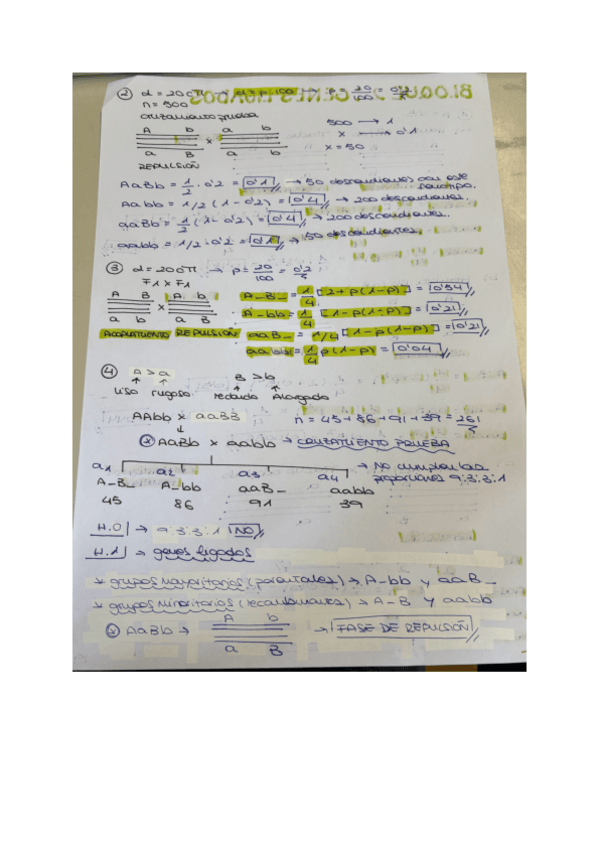 ② d = 20cM → d = p·100 → p = 20/100 = 0'2
n = 500
cruzamiento prueba
A b a b
x
a B a b
500 → 1
x → 0'1
x = 50
REPULSIÓN
AaBb = 1/2 · 0'2 = 0'1 → 50 descendientes con este fenotipo.
Aabb = 1/2 (1 - 0'2) = 0'4 → 200 descendientes.
aaBb = 1/2 (1 - 0'2) = 0'4 → 200 descendientes.
aabb = 1/2 · 0'2 = 0'1 → 50 descendientes
③ d = 20cM → p = 20/100 = 0'2
F1 x F1
A B A b
x
a b a B
ACOPLAMIENTO REPULSIÓN
A_B_ = 1/4 [2 + p(1-p)] = 0'54
A_bb = 1/4 [1 - p(1-p)] = 0'21
aaB_ = 1/4 [1 - p(1-p)] = 0'21
aabb = 1/4 p(1-p) = 0'04
④ A > a B > b
liso rugoso redondo Alargado
AAbb x aaBB n = 45 + 86 + 91 + 39 = 261
AaBb x aabb → CRUZAMIENTO PRUEBA
a1 a2 a3 a4
A_B_ A_bb aaB_ aabb
45 86 91 39
→ No cumplen las proporciones 9:3:3:1
H.0 → 9:3:3:1 NO
H.1 → genes ligados
→ grupos mayoritarios (parentales) → A-bb y aaB_
→ grupos minoritarios (recombinantes) → A-B y aabb
AaBb → A b
a B
→ FASE DE REPULSIÓN